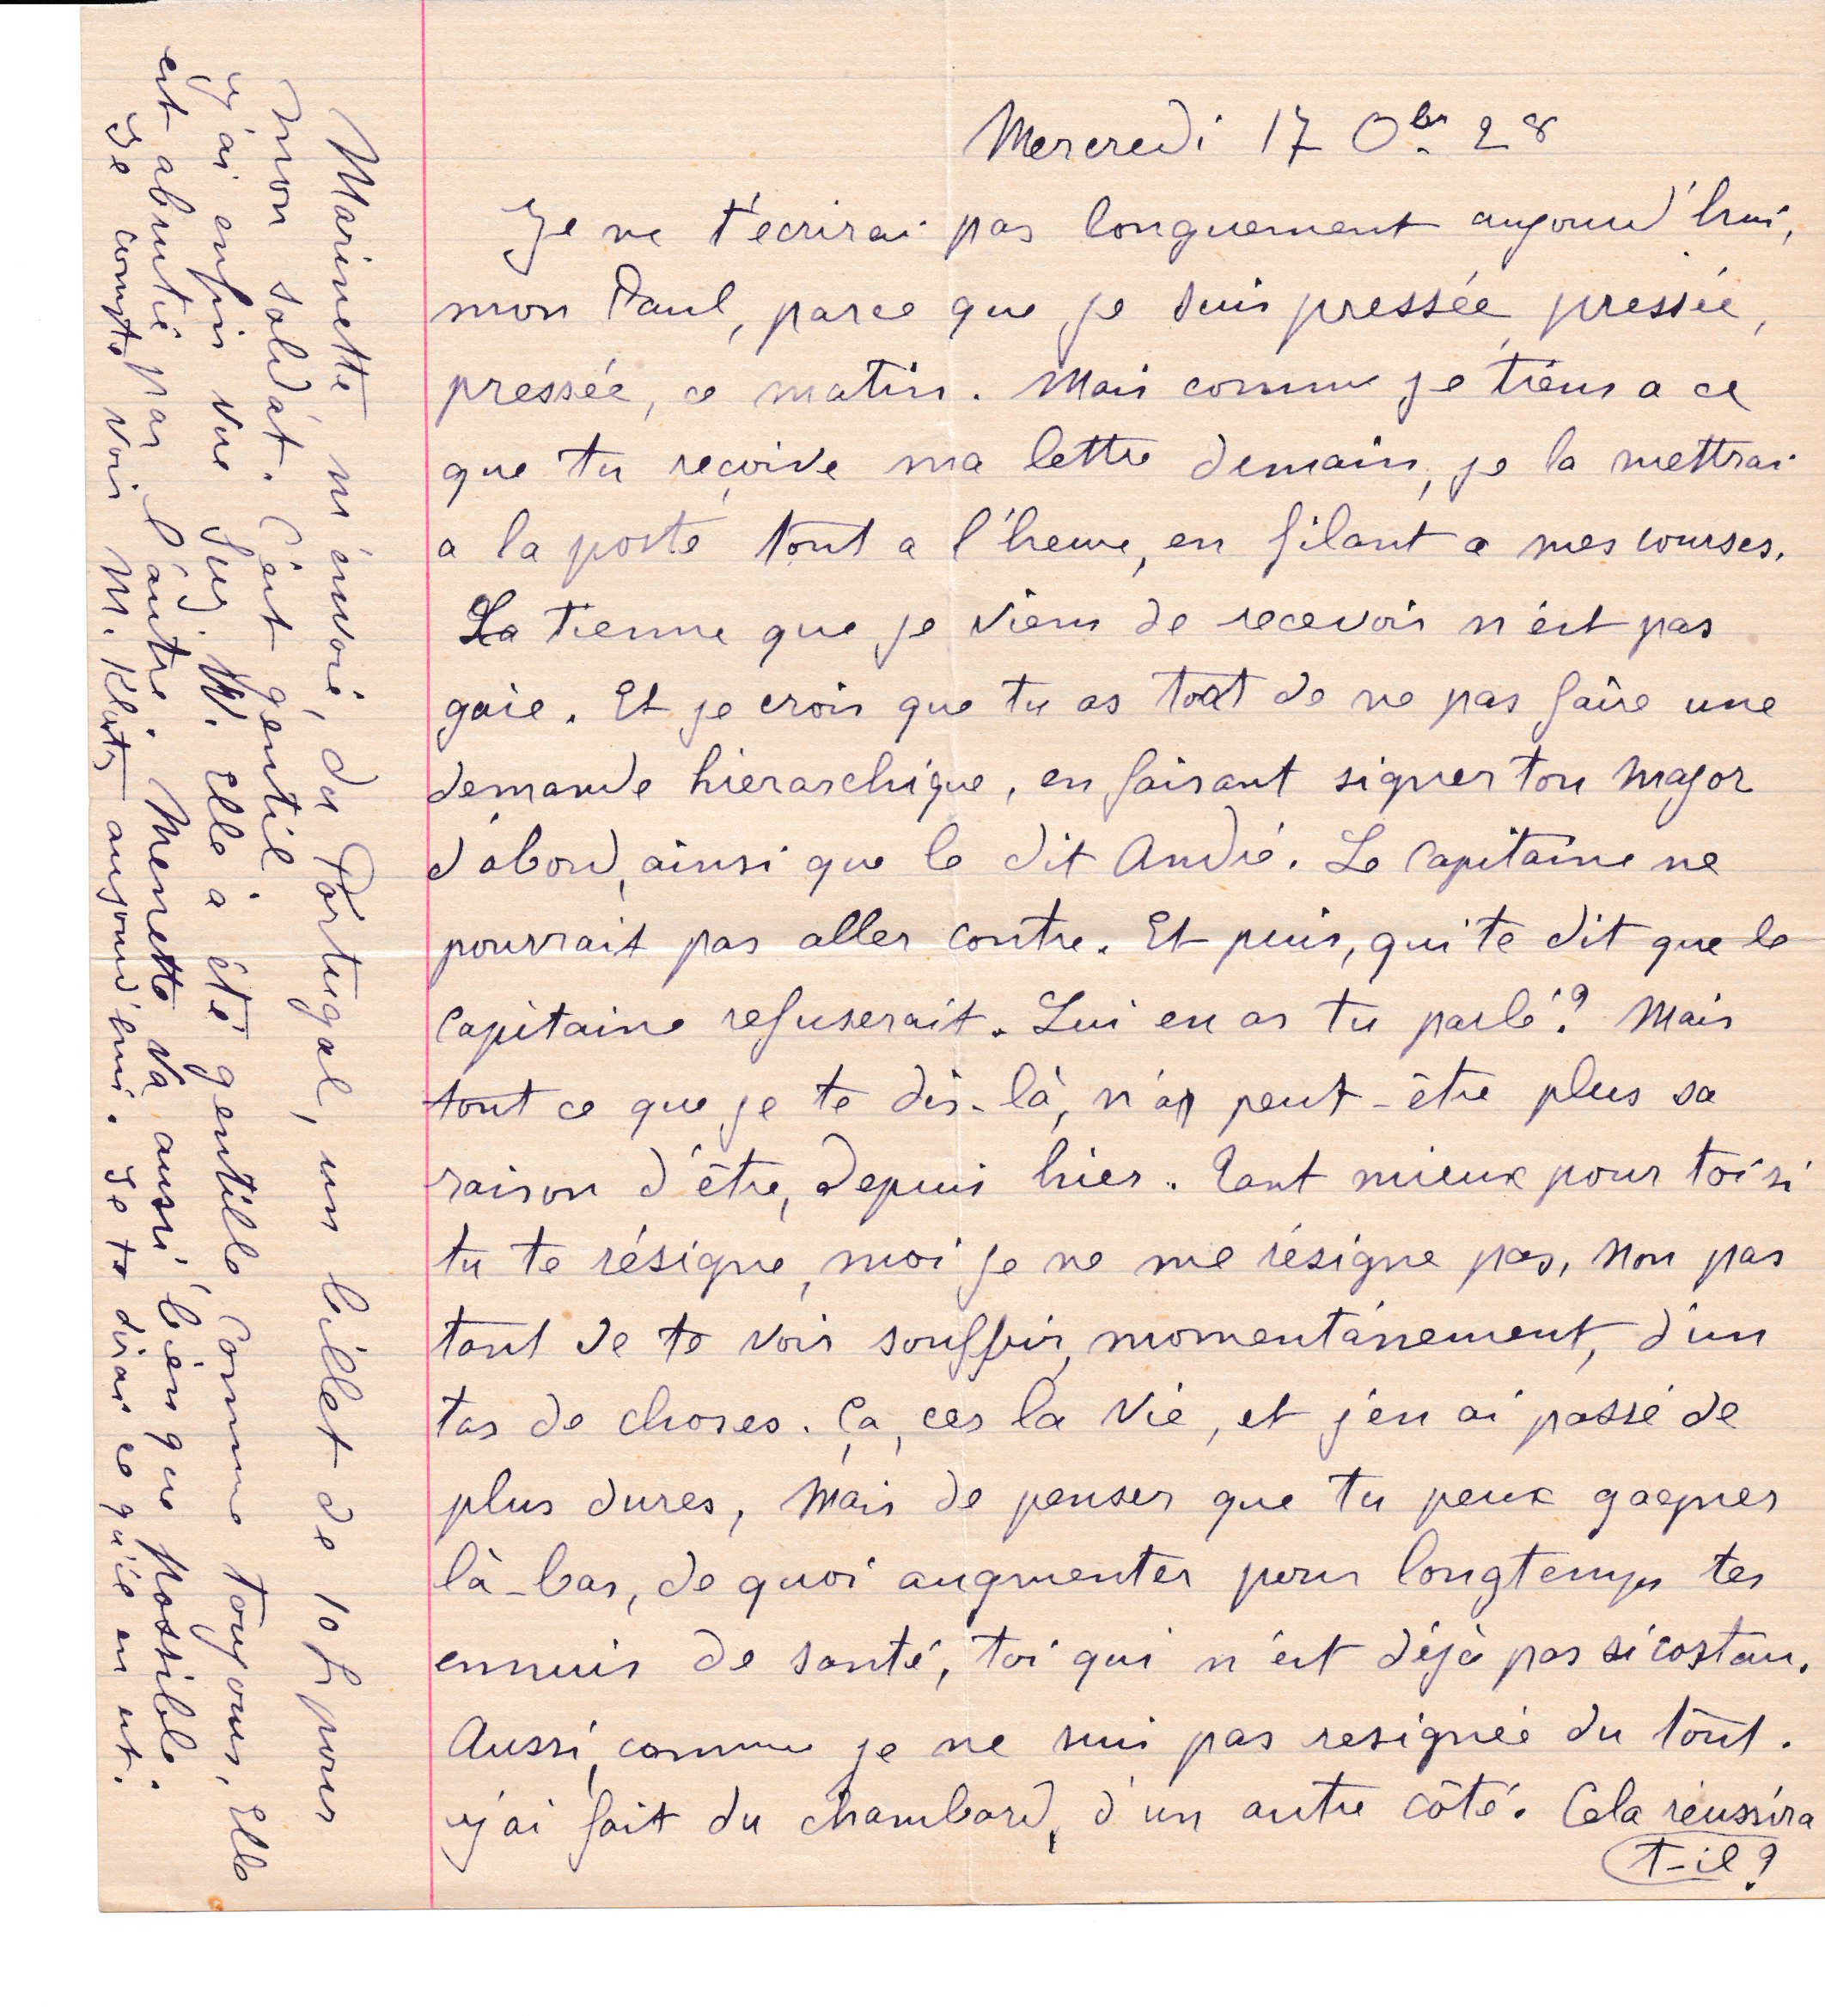 Mercredi 17 Obr. 28
Je ne t'écrirai pas longuement aujourd'hui,
mon Paul, parce que je suis pressée, pressée,
pressée, ce matin. Mais comme je tiens a ce
que tu reçoive ma lettre demain, je la mettrai
a la poste tout a l'heure, en filant a mes courses.
La tienne que je viens de recevoir n'est pas
gaie. Et je crois que tu as tort de ne pas faire une
demande hierarchique, en faisant signer ton Major
d'abord, ainsi que le dit André. Le Capitaine ne
pourrait pas aller contre. Et puis, qui te dit que le
Capitaine refuserait. Lui en as tu parlé? Mais
tout ce que je te dis-là, n'a peut-être plus sa
raison d'être, depuis hier. Tant mieux pour toi si
tu te résigne, moi je ne me résigne pas, Non pas
tant de te voir souffrir, momentanément, d'un
tas de choses. Ça, ces la vie, et j'en ai passé de
plus dures, Mais de penser que tu peux gagner
là-bas, de quoi augmenter pour longtemps tes
ennuis de santé, toi qui n'est déjà pas si costau.
Aussi, comme je ne suis pas resignée du tout.
j'ai fait du chambard, d'un autre côté. Cela réussira
t-il?
Marinette m'envoie, du Portugal, un billet de 10 fr pour
mon soldat. C'est gentil
J'ai enfin vue Juj. W. Elle a été gentille comme toujours, Elle
est abrutie par l'autre. Menette va aussi bien que possible.
Je compte voir M. aujourd'hui. Je te dirai ce qu'il en est.